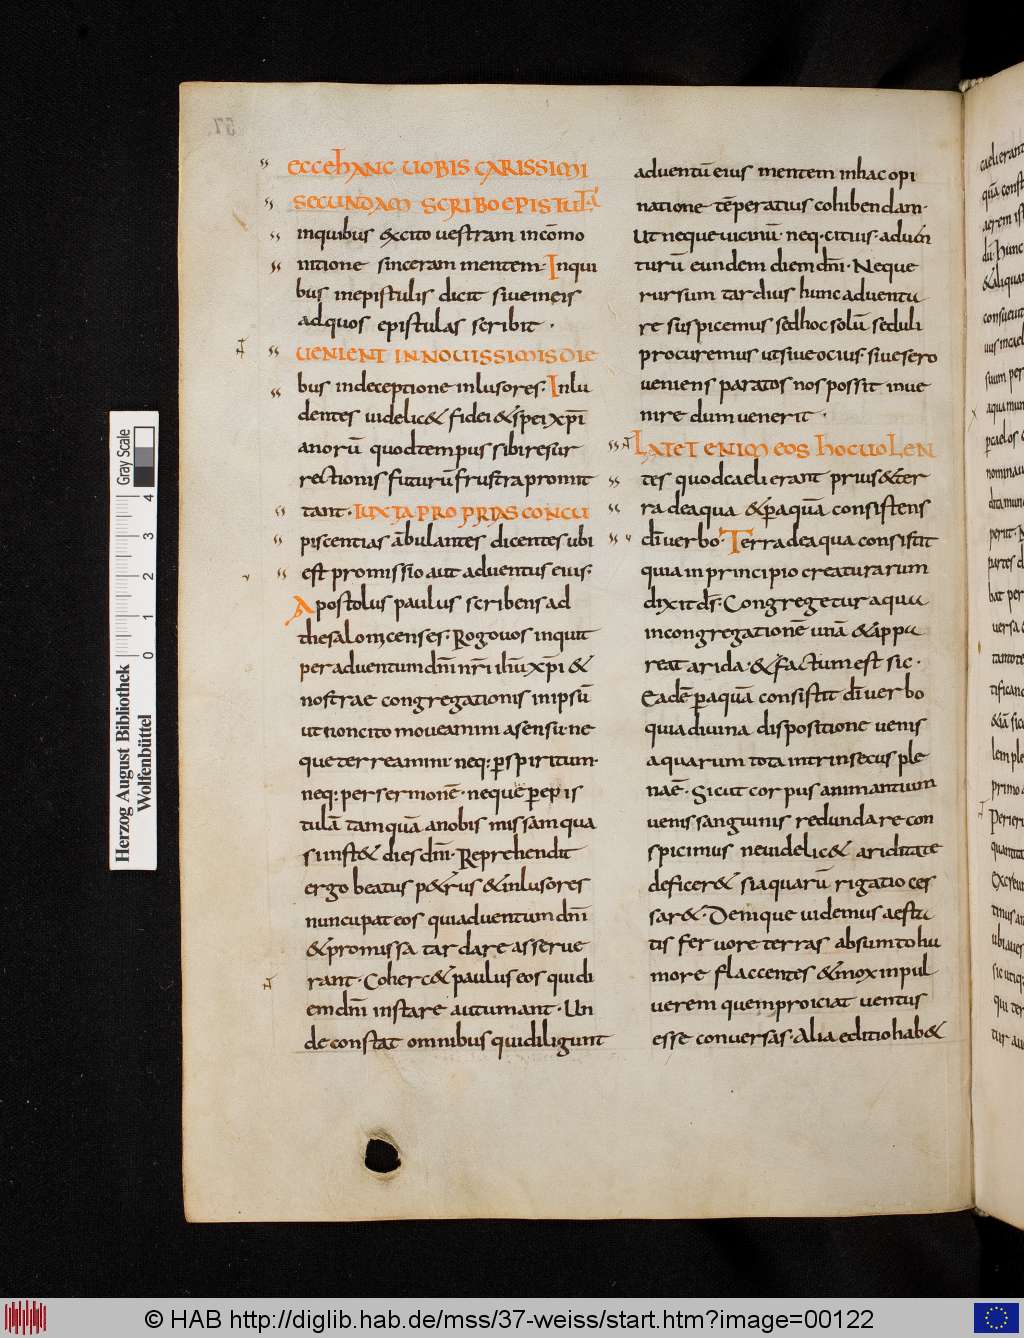 ecce hanc uobis carissimi
secundam scribo epistulā
inquibus &cito uestram incōmo
nitione sinceram mentem. Inqui
bus inepistulis dicit siue in eis
adquos epistulas scribit .
uenient in nouissimis die
bus indeceptione inlusores. Inlu
dentes uidelic& fidei & spei xp̄i
anorū quod tempus sibi resur
rectionis futurū frustra promit
tant. Iuxta proprias concu
piscentias ābulantes dicentes ubi
est promissio aut aduentus eius.
Apostolus paulus scribens ad
thesalonicenses. Rogo uos inquit
per aduentum dn̄i nr̄i ih̄u xp̄i &
nostrae congregationis in ipsū
ut non cito moueamini a sensu. ne
que terreamini neq: p̄ spiritum.
neq: per sermonē. neque p̄ epis
tulā tam quā a nobis missam qua
si inst& dies dn̄i. Reprehendit
ergo beatus p&rus & inlusores
nuncupat eos qui aduentum dn̄i
& promissa tardare asserue
rant. Coherc& paulus eos qui di
em dn̄i instare autumant. Un
de constat omnibus qui diligunt
aduentū eius mentem in hac opi
natione tēperatius cohibendam.
Ut neque uicinū. neq. citius. aduen
turū eundem diem dn̄i. Neque
rursum tardius hunc aduentu
re suspicemus sed hoc solū seduli
procuremus ut siue ocius. siue sero
ueniens paratos nos possit inue
nire dum uenerit .
Latet enim eos hoc uolen
tes quod caeli erant prius & ter
ra de aqua & p̄ aquā consistens
dī uerbo. Terra de aqua consistit
quia in principio creaturarum
dixit ds̄. Congregetur aqua
in congregationē unā & appa
reat arida. & factum est sic.
Eadē p̄ aquā consistit dī uerbo
quia diuina dispositione uenis
aquarum tota intrinsecus ple
naē. Sicut corpus animantium
uenis sanguinis redundare con
spicimus ne uidelic& ariditate
deficer& si aquarū rigatio ces
sar&. Denique uidemus aestu
tis feruore terras absumto hu
more flaccentes & mox in pul
uerem quem proiciat uentus
esse conuersas. Alia editio hab&
Herzog August Bibliothek
Wolfenbüttel
Gray Scale
0 1 2 3 4
© HAB http://diglib.hab.de/mss/37-weiss/start.htm?image=00122